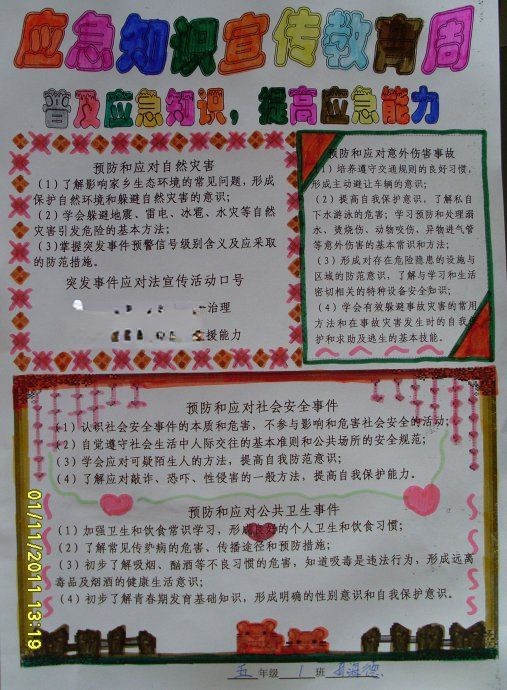 应急知识宣传教育周
普及应急知识，提高应急能力
预防和应对自然灾害
（1）了解影响家乡生态环境的常见问题，形成
保护自然环境和躲避自然灾害的意识；
（2）学会躲避地震、雷电、冰雹、水灾等自然
灾害引发危险的基本方法；
（3）掌握突发事件预警信号级别含义及应采取
的防范措施。
突发事件应对法宣传活动口号
治理
援能力
预防和应对意外伤害事故
（1）培养遵守交通规则的良好习惯，
形成主动避让车辆的意识；
（2）提高自我保护意识，了解私自
下水游泳的危害；学习预防和处理溺
水、烫烧伤、动物咬伤、异物进气管
等意外伤害的基本常识和方法；
（3）形成对存在危险隐患的设施与
区域的防范意识，了解与学习和生活
密切相关的特种设备安全知识；
（4）学会有效躲避事故灾害的常用
方法和在事故灾害发生时的自我保
护和求助及逃生的基本技能。
预防和应对社会安全事件
（1）认识社会安全事件的本质和危害，不参与影响和危害社会安全的活动；
（2）自觉遵守社会生活中人际交往的基本准则和公共场所的安全规范；
（3）学会应对可疑陌生人的方法，提高自我防范意识；
（4）了解应对敲诈、恐吓、性侵害的一般方法，提高自我保护能力。
预防和应对公共卫生事件
（1）加强卫生和饮食常识学习，形成良好的个人卫生和饮食习惯；
（2）了解常见传染病的危害、传播途径和预防措施；
（3）初步了解吸烟、酗酒等不良习惯的危害，知道吸毒是违法行为，形成远离
毒品及烟酒的健康生活意识；
（4）初步了解青春期发育基础知识，形成明确的性别意识和自我保护意识。
五 年级 1 班
01/11/2011 13:19